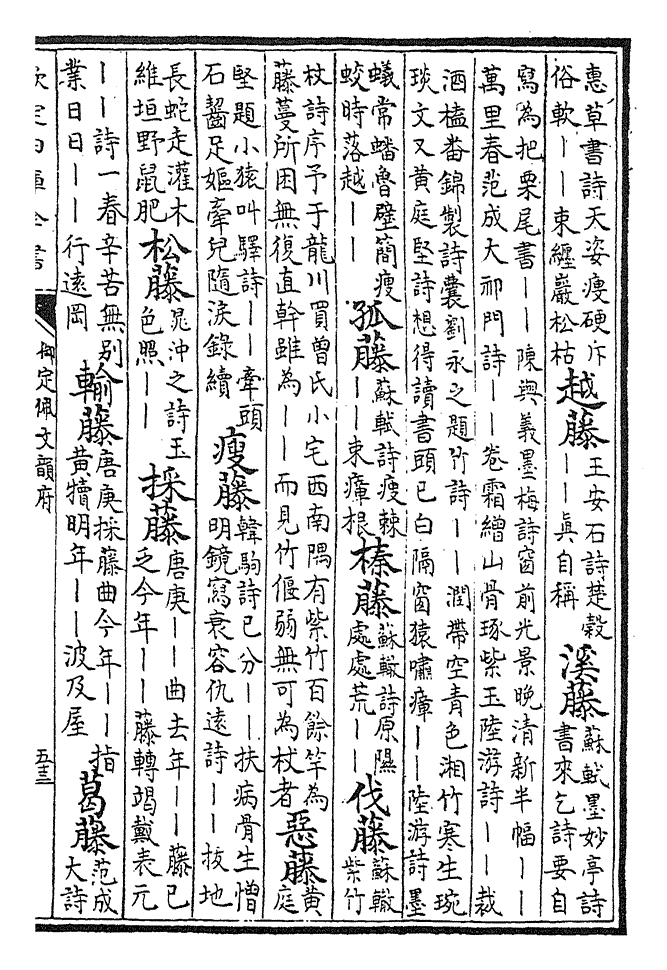 惠草書詩天姿瘦硬斥俗軟——束纏巖松枯越藤王安石詩楚縠——眞自稱溪藤蘇軾墨妙亭詩書來乞詩要自
寫為把栗尾書——陳與義墨梅詩窗前光景晚清新半幅——
萬里春范成大祁門詩——卷霜繒山骨琢紫玉陸游詩——裁
酒榼番錦製詩囊劉永之題竹詩——潤帶空青色湘竹寒生琬
琰文又黄庭堅詩想得讀書頭已白隔窗猿嘯瘴——陸游詩墨
蟻常蟠魯壁簡瘦蛟時落越——孤藤蘇軾詩瘦棘——束瘴根榛藤蘇轍詩原隰處處荒——伐藤蘇轍紫竹
杖詩序予于龍川買曾氏小宅西南隅有紫竹百餘竿為藤蔓所困無復直幹雖為——而見竹偃弱無可為杖者惡藤黄庭
堅題小猿叫驛詩——牽頭石齧足嫗牽兒隨淚錄續瘦藤韓駒詩已分——扶病骨生憎明鏡寫衰容仇遠詩——拔地
長蛇走灌木維垣野鼠肥松藤晁沖之詩玉色照——採藤唐庚——曲去年——藤已乏今年——藤轉竭戴表元
——詩一春辛苦無别業日日——行遠岡輸藤唐庚採藤曲今年——指黄犢明年——波及屋葛藤范成大詩
欽定四庫全書
御定佩文韻府